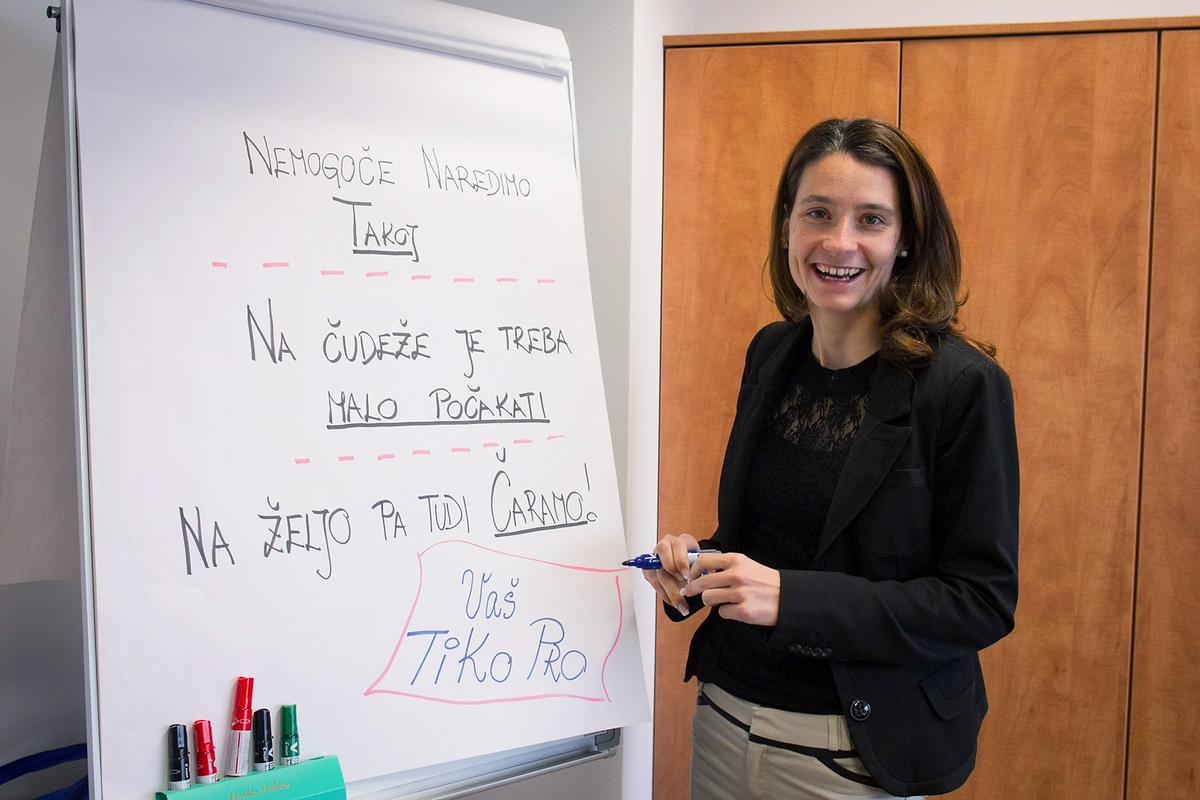 Nemogoče Naredimo
Takoj
Na čudeže je treba
malo počakati
Na željo pa tudi Čaramo!
Vaš
TiKo Pro